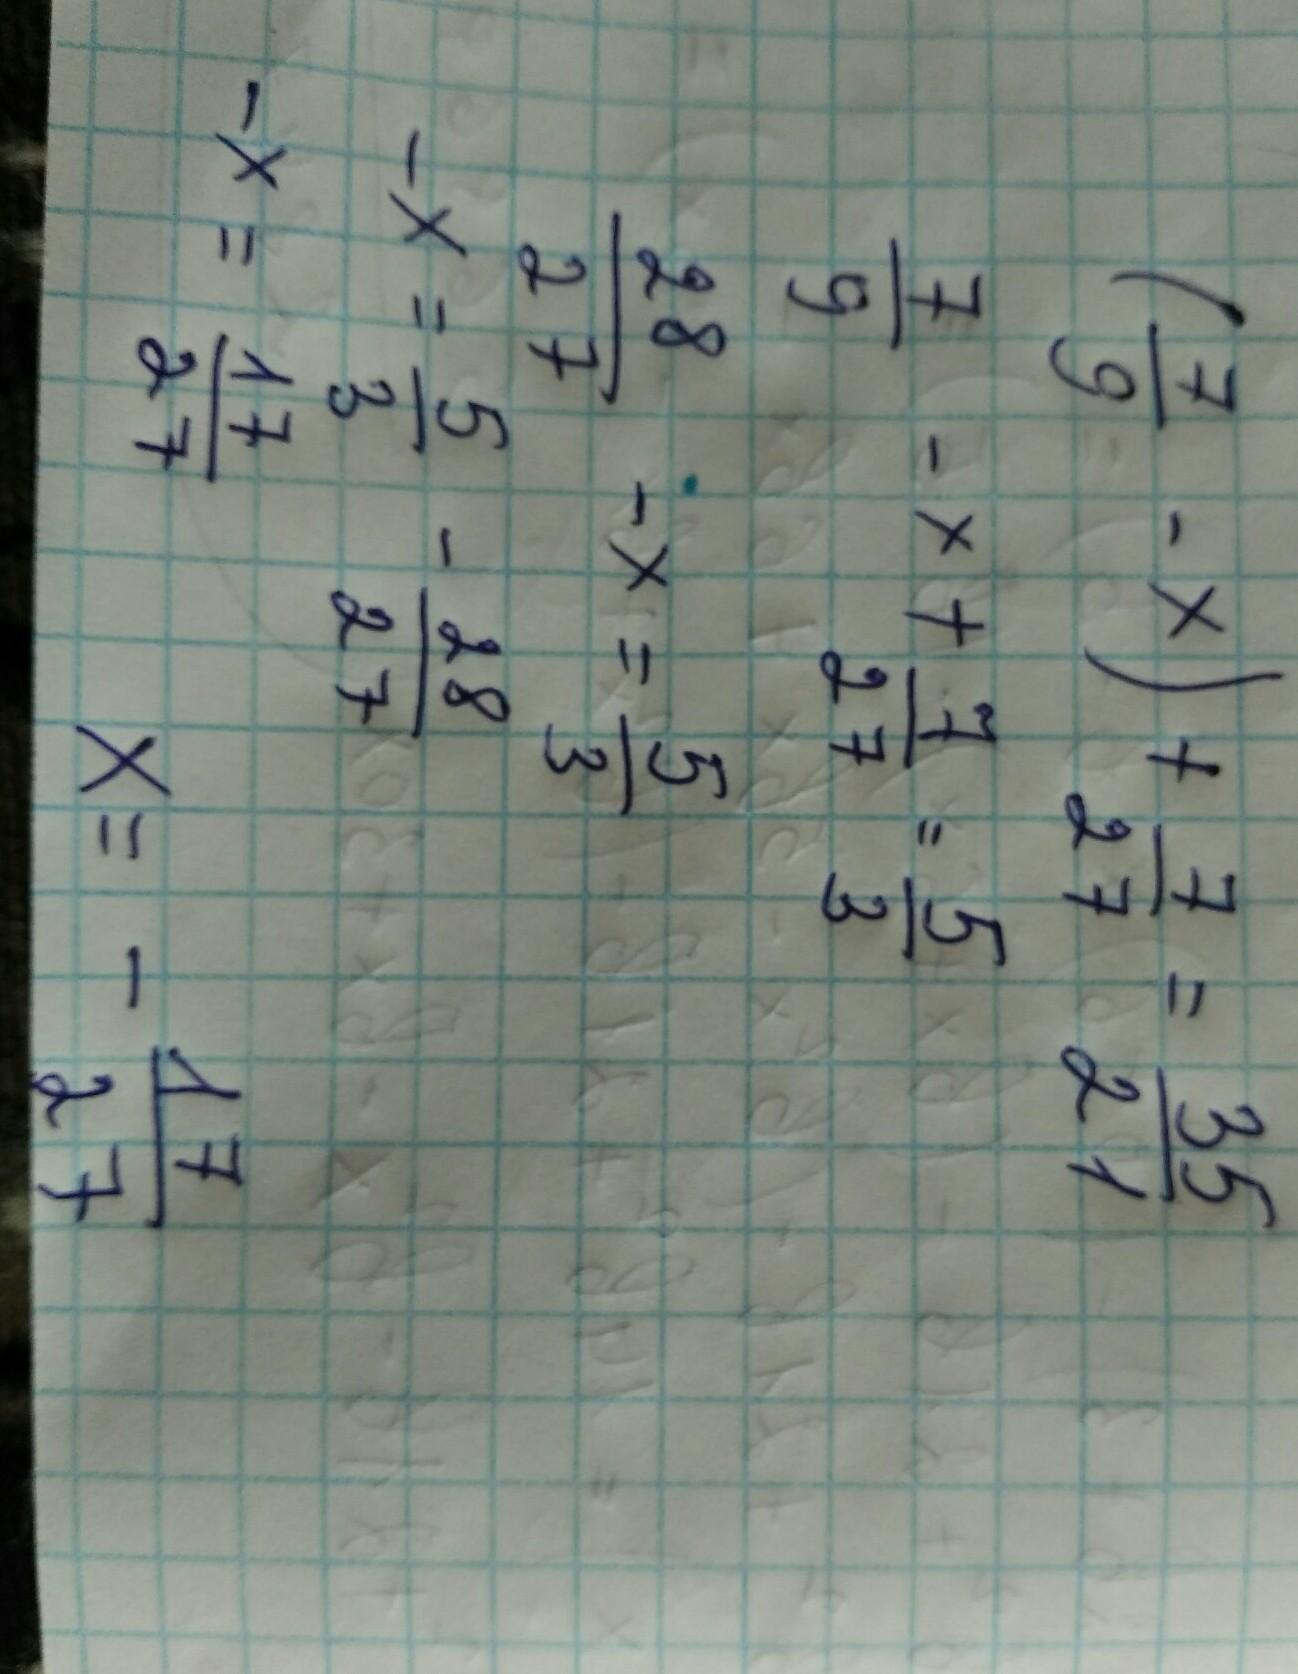 (7/9 - x) + 7/27 = 35/21
7/9 - x + 7/27 = 5/3
28/27 - x = 5/3
-x = 5/3 - 28/27
-x = 17/27
x = - 17/27